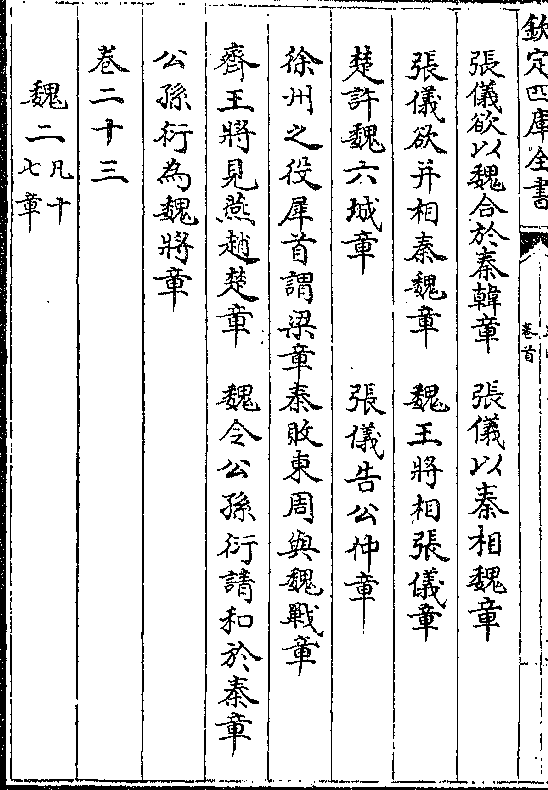 欽定四庫全書
卷首
張儀欲以魏合於秦韓章　張儀以秦相魏章
張儀欲并相秦魏章　魏王將相張儀章
楚許魏六城章　張儀告公仲章
徐州之役犀首謂梁章秦敗東周與魏戰章
齊王將見燕趙楚章　魏令公孫衍請和於秦章
公孫衍為魏將章
卷二十三
魏二凡十七章